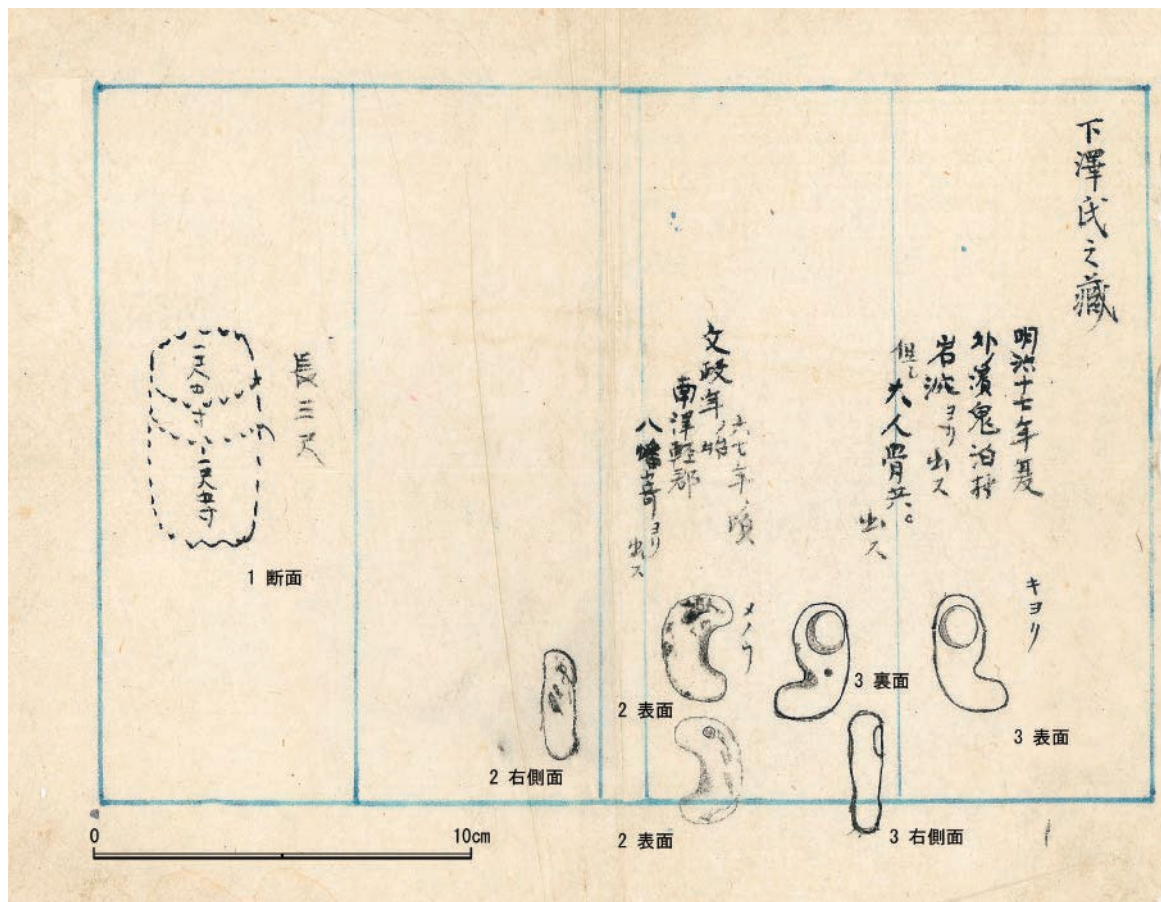 下澤氏之藏
明治十七年夏
外濱鬼泊村
岩流ヨリ出ス
但し大人骨共ニ
出ス
キヨリ
文政年ノ始
六七年ノ頃
南津軽郡
八幡嵜ヨリ
出ス
メノウ
長三尺
一尺四寸
一尺五寸
1 断面
2 表面
2 右側面
2 表面
3 裏面
3 表面
3 右側面
0
10cm